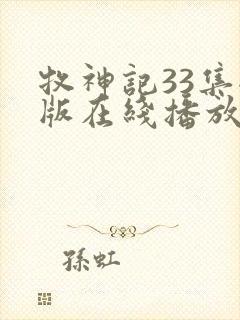 牧神記33集
版在綫播放
孫虹